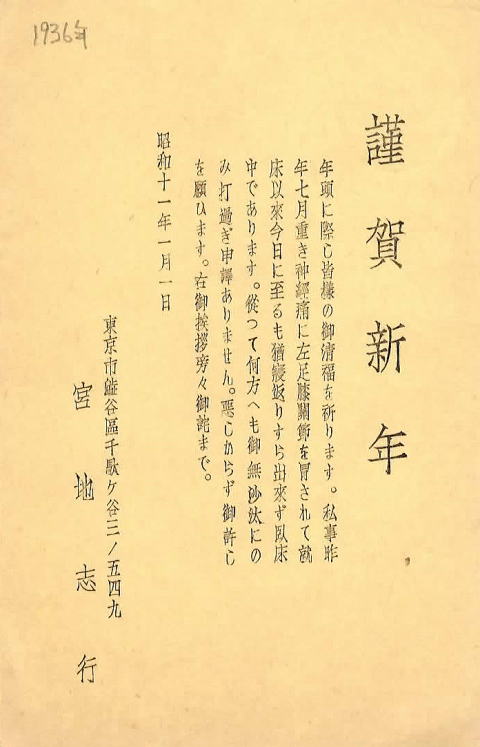 1936年
謹賀新年
年頭に際し皆樣の御清福を祈ります。私事昨
年七月重き神經痛に左足膝關節を冐されて就
床以來今日に至るも猶寢返りすら出來ず臥床
中であります。從つて何方へも御無沙汰にの
み打過ぎ申譯ありません。惡しからず御許し
を願ひます。右御挨拶旁々御詫まで。
昭和十一年一月一日
東京市澁谷區千駄ケ谷三ノ五四九
宮地志行